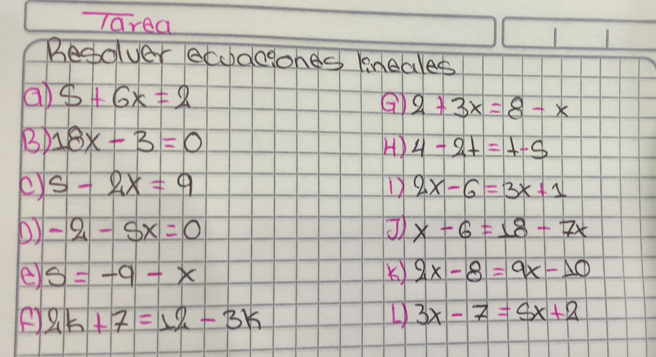 Tarea
Resolver ecuaciones lineales
a) 5 + 6x = 2
B) 18x - 3 = 0
c) 5 - 2x = 9
D) -2 - 5x = 0
e) 5 = -9 - x
F) 2k + 7 = 12 - 3k
G) 2 + 3x = 8 - x
H) 4 - 2t = t - 5
I) 2x - 6 = 3x + 1
J) x - 6 = 18 - 7x
K) 2x - 8 = 9x - 10
L) 3x - 7 = 5x + 2